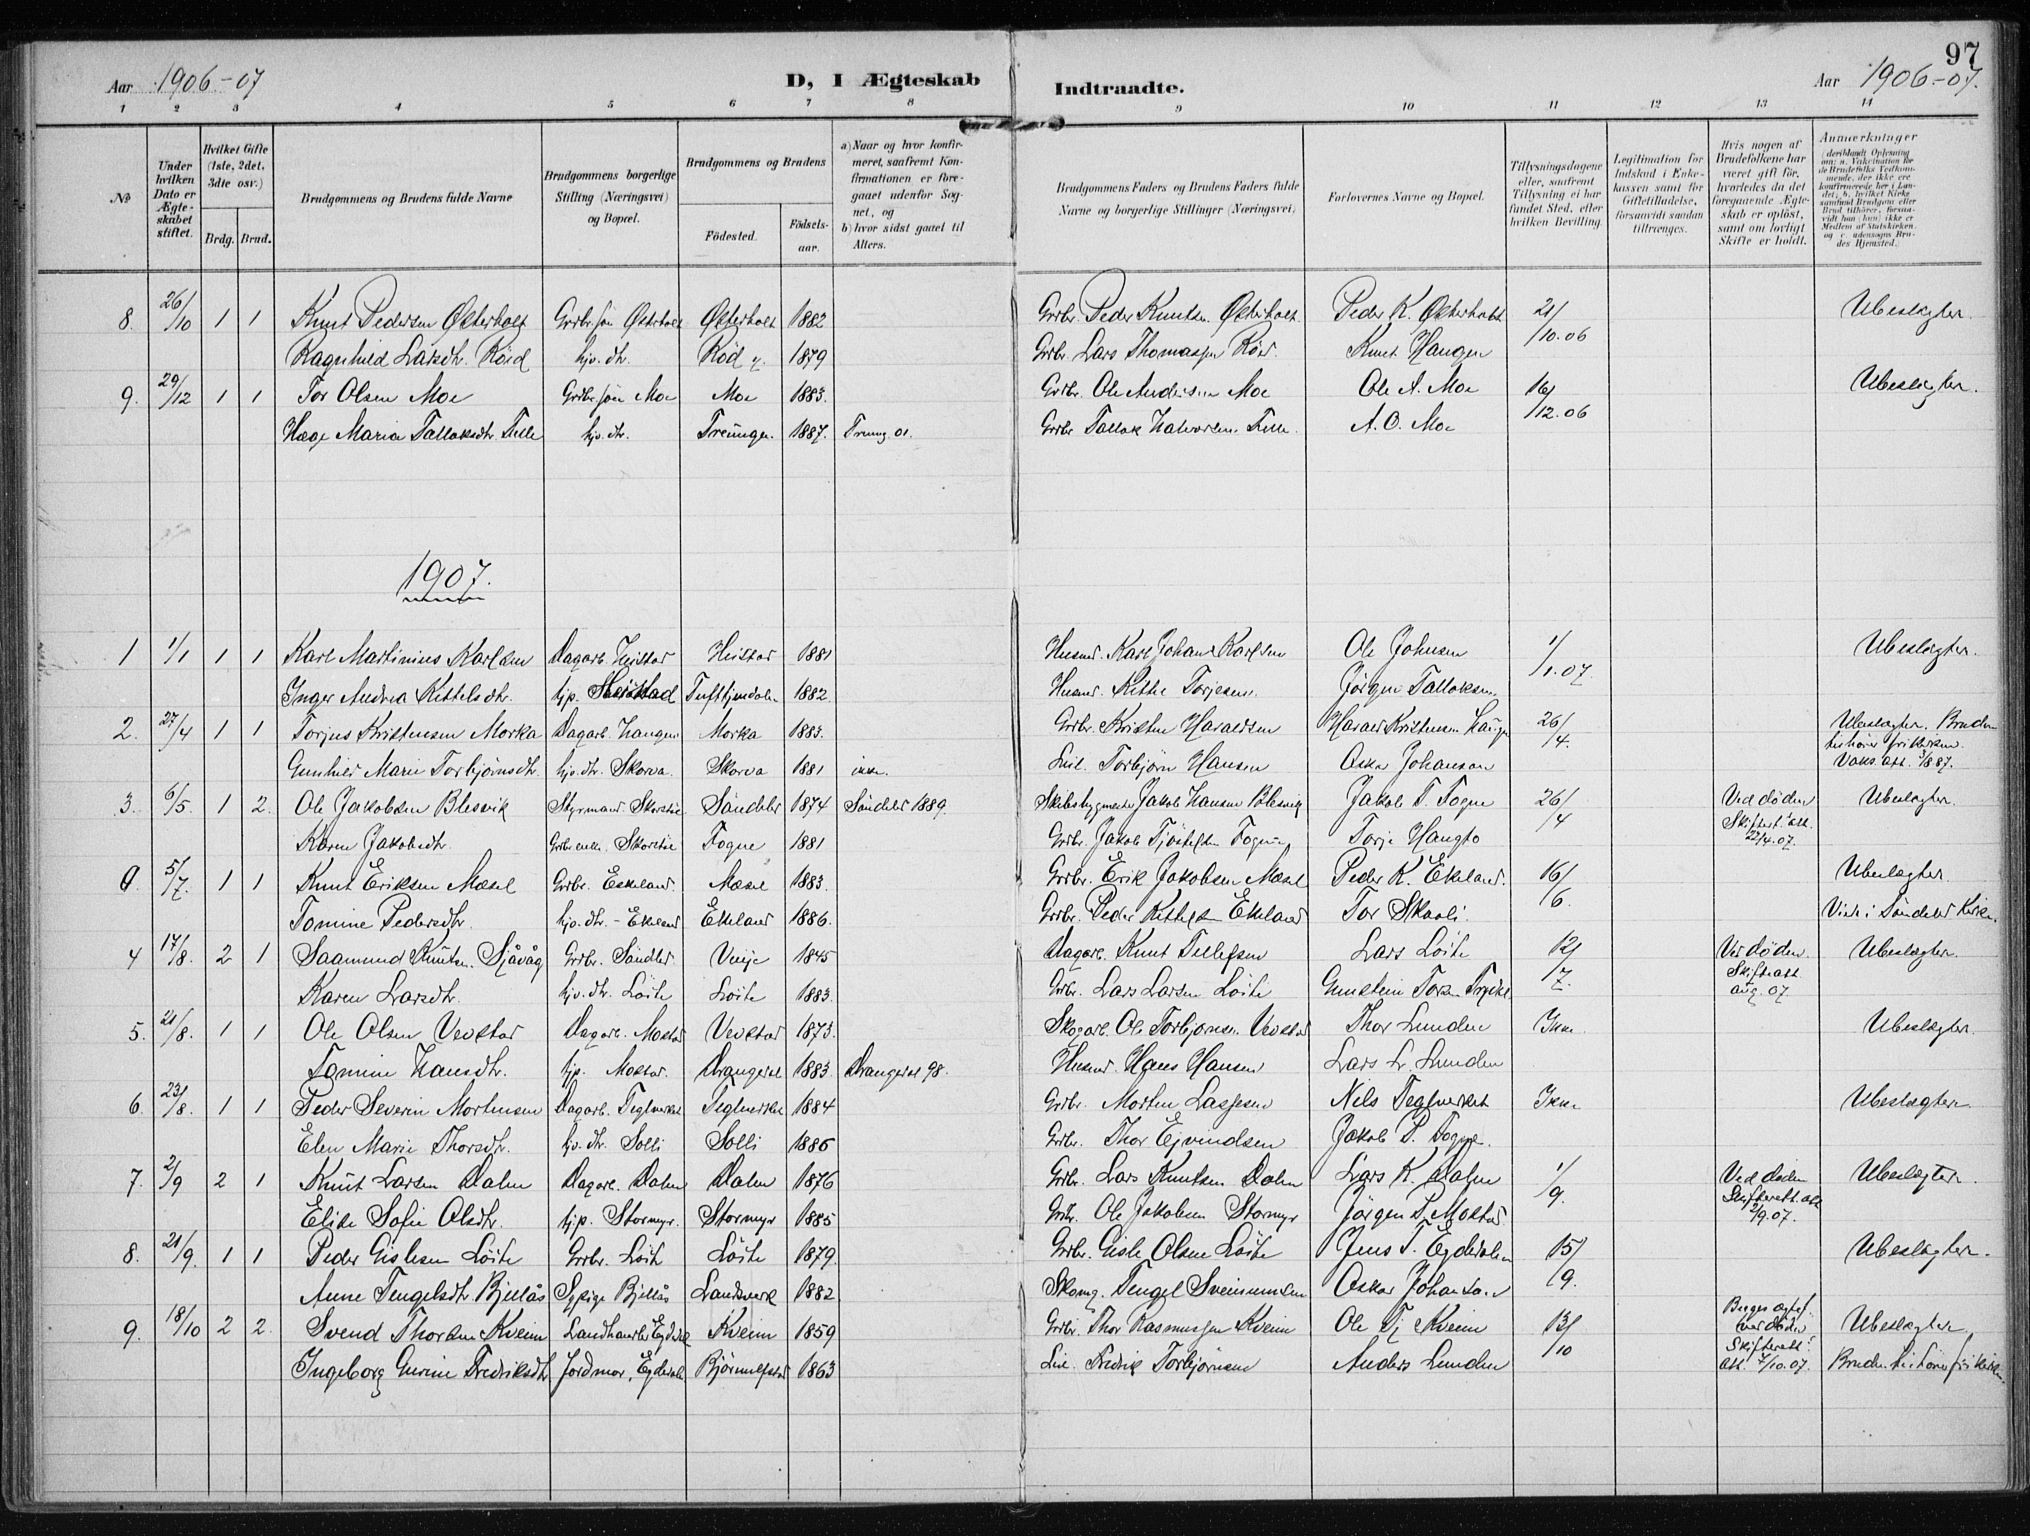 97
Aar 1906-07 D, I Ægteskab Indtraadte. Aar 1906-07.
1 2 3 4 5 6 7 8 9 10 11 12 13 14
№
Under hvilken Dato er Ægteskabet stiftet.
Hvilket Gifte (1ste, 2det, 3dte osv.)
Brdg. Brud.
Brudgommens og Brudens fulde Navne
Brudgommens borgerlige Stilling (Næringsvei) og Bopæl.
Brudgommens og Brudens
Födested. Födselsaar.
a) Naar og hvor konfirmeret, saafremt Konfirmationen er foregaaet udenfor Sognet, og
b) hvor sidst gaaet til Alters.
Brudgommens Faders og Brudens Faders fulde Navne og borgerlige Stillinger (Næringsvei)
Forlovernes Navne og Bopæl.
Tillysningsdagene eller, saafremt Tillysning ei har fundet Sted, efter hvilken Bevilling.
Legitimation for Indskud i Enkekassen samt for Giftetilladelse, forsaavidt saadan tiltrænges.
Hvis nogen af Brudefolkene har været gift før, hvorledes da det foregaaende Ægteskab er opløst, samt om lovligt Skifte er holdt.
Anmerkninger
8. 26/10 1 1 Knut Pedersen Østerholt Grdbr. søn Østerholt Østerholt 1882 Grdbr. Peder Knutsen Østerholt Peder K. Østerholt 21/10.06 Ubeslægter.
Ragnhild Larsdtr. Röed hjv. dtr. 1879 Grdbr. Lars Thomassen Röed Knut Haugen
9. 29/12 1 1 Tor Olsen Moe Grdbr søn Moe Moe 1883. Grdbr. Ole Andersen Moe Ole A. Moe 16/12.06 Ubeslægter.
Hæge Maria Tallaksdtr. hjv. dtr. Treungen 1887. Treung. 01. Grdbr Tallak Halvorsen A. O. Moe
1907.
1 1/1 1 1 Karl Martinius Karlsen Dagarb. Heistad Heistad 1881 Husmd. Karl Johan Karlsen Ole Johnsen 1/1.07. Ubeslægter.
Inger Andrea Kittelsdtr. tjp. 1882. Husmd. Kittel Torjesen Jörgen Tallaksen
2. 27/4 1 1 Torjus Kristensen Morka Dagarb. Haugen Morka 1883. Grdbr. Kristen Haraldsen Harald Kristensen Haugen 26/4. Ubeslægter. Bruden tilhörer frikirken.
Gunhild Marie Torbjörnsdtr. hjv. dtr. Skorva. Skorva 1881 ikke. Torbjörn Hansen Oskar Johansen
3. 6/5 1 2. Ole Jakobsen Blesvik Styrmand Söndeled 1874 Söndeled 1889. Skibsbygmester Jakob Hansen Blesvik Jakob T. Fogne 26/4 Ved döden Skifteret. att. 22/4.07. Ubeslægter.
Karen Jakobsdtr. Fogne 1881 Grdbr. Jakob Fogne Torje Haugto
9. 5/7. 1 1 Knut Eriksen Mæsel Grdbr. Ekeland. Mæsel 1883. Grdbr. Erik Jakobsen Mæsel Peder K. Ekeland. 16/6. Ubeslægter.
Tomine Pedersdtr. hjv. dtr. - Ekeland Ekeland 1886. Grdbr. Peder Kittelsen Ekeland Tor Skaali. Viet i Söndeled Kirke.
4 17/8. 2 1 Saamund Knutsen Sjåvåg Grdbr. Söndled. Vinje 1845 Dagarb. Knut Tellefsen Lars Löite 12/7. Ved döden. Skifteatt. aug. 07. Ubeslægter.
Karen Larsdtr. hjv. dtr. Löite Löite 1883. Grdbr. Lars Larsen Löite Gunstein
5. 21/8. 1 1 Ole Olsen Vevstad Dagarb. Mostad Vevstad 1873. Skogarb. Ole Torbjörnsen Vevstad Thor Lunden Ikke Ubeslægter.
Tomine Hansdtr. tjp. Mostad. Drangedal 1883. Drangedal 98. Husmd. Hans Hansen Lars L. Lunden
6. 23/8. 1 1 Peder Severin Mortensen Dagarb. Teglverket Teglverket 1884 Grdbr. Morten Lassesen Nils Teglverket Ikke Ubeslægter.
Elen Marie Thorsdtr. hjv. dtr. Solli Solli 1886 Grdbr. Thor Ejvindsen Jakob P. Fogne.
7. 2/9 2 1 Knut Larsen Dalen Dagarb. Dalen Dalen 1876 Grdbr. Lars Knutsen Dalen Lars K. Dalen 1/9. Ved döden Skifterett. att. 2/9.07. Ubeslægter.
Elise Sofie Olsdtr. tjp. Stormyr. Stormyr 1885 Grdbr. Ole Jakobsen Stormyr Jörgen P. Mostad
8. 21/9. 1 1 Peder Gislesen Löite Grdbr. Löite Löite 1879. Grdbr. Gisle Olsen Löite Jens T. Egdedalen 15/9. Ubeslægter.
Anne Tengelsdtr. Bjellås Sypige Bjellås Landsverk 1882 Tengel Oskar Johansen
9. 18/10 2 2. Svend Thorsen Kveim Landhandler Egdedal Kveim 1859 Grdbr. Thor Rasmussen Kveim Ole Tj. Kveim 13/10 Begges ægtef. ved döden Skifterett. att. 7/10.07. Ubeslægter.
Ingeborg Gurine Fredriksdtr. Jordmor, Egdedal 1863 Fredrik Torbjörnsen Anders Lunden Bruden tilhörer frikirken.